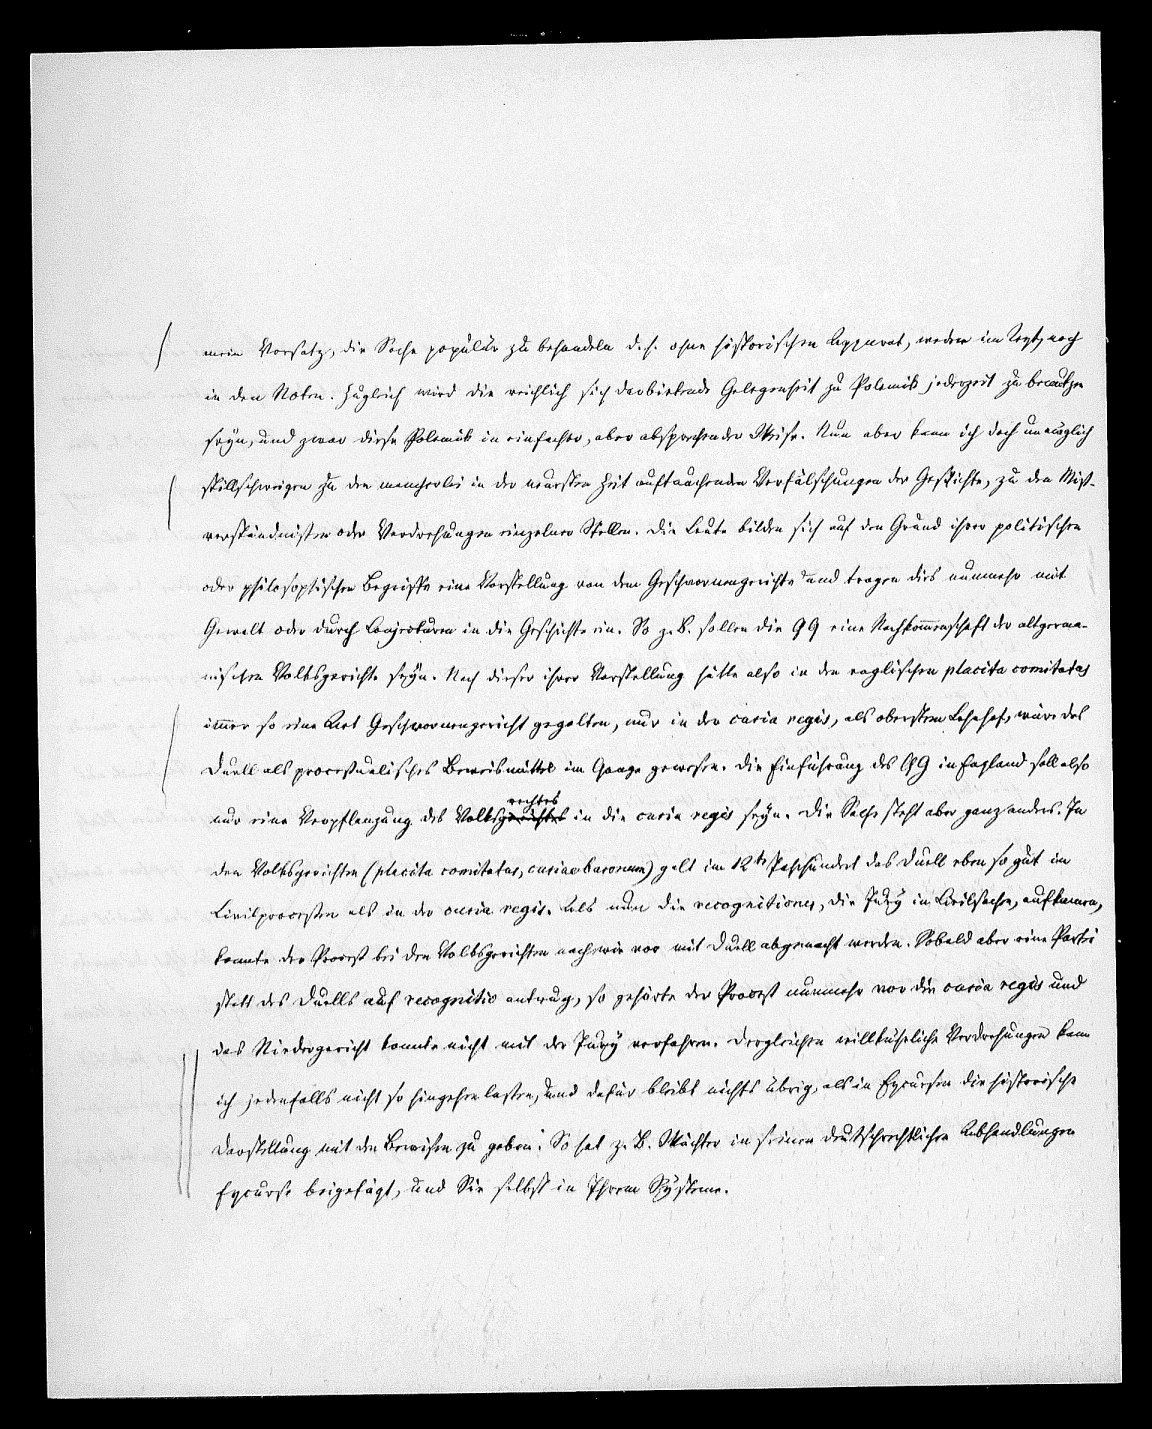 mein Vorsatz, die Sache populär zu behandeln d. h. ohne historischen Apparat, weder im Text, noch
in den Noten. Zugleich wird die reichlich sich darbietende Gelegenheit zu Polemik jederzeit zu benutzen
seyn, und zwar diese Polemik in einfacher, aber absprechender Weise. Nun aber kann ich doch unmöglich
stillschweigen zu den mancherlei in der neuesten Zeit auftauchenden Verfälschungen der Geschichte, zu den Miß-
verständnissen oder Verdrehungen einzelner Stellen. Die Leute bilden sich auf den Grund ihrer politischen
oder philosophischen Begriffe eine Vorstellung von dem Geschwornengerichte und tragen dies nunmehr mit
Gewalt oder durch Conjecturen in die Geschichte ein. So z. B. sollen die GG eine Nachkommenschaft der altgerma-
nischen Volksgerichte seyn. Nach dieser ihrer Vorstellung hätte also in den englischen placita comitatus
immer so eine Art Geschwornengericht gegolten, nur in der curia regis, als oberstem Lehnhof, wäre das
Duell als processualisches Beweismittel im Gange gewesen. Die Einführung des GG in England soll also
nur eine Verpflanzung des Volksgerichtes rechtes in die curia regis seyn. Die Sache steht aber ganz anders. In
den Volksgerichten (placita comitatus, curiae baronum) galt im 12t Jahrhundert das Duell eben so gut in
Civilprocessen als in der curia regis. Als nun die recognitiones, die Jury in Civilsachen, aufkamen,
konnte der Proceß bei den Volksgerichten nach wie vor mit Duell abgemacht werden. Sobald aber eine Partei
statt des Duells auf recognitio antrug, so gehörte der Proceß nunmehr vor die curia regis und
das Niedergericht konnte nicht mit der Jury verfahren. Dergleichen willkührliche Verdrehungen kann
ich jedenfalls nicht so hingehen lassen, und dafür bleibt nichts übrig, als in Excursen die historische
Darstellung mit den Beweisen zu geben. So hat z. B. Wächter in seinen deutschrechtlichen Abhandlungen
Excurse beigefügt, und Sie selbst in Ihrem Systeme.